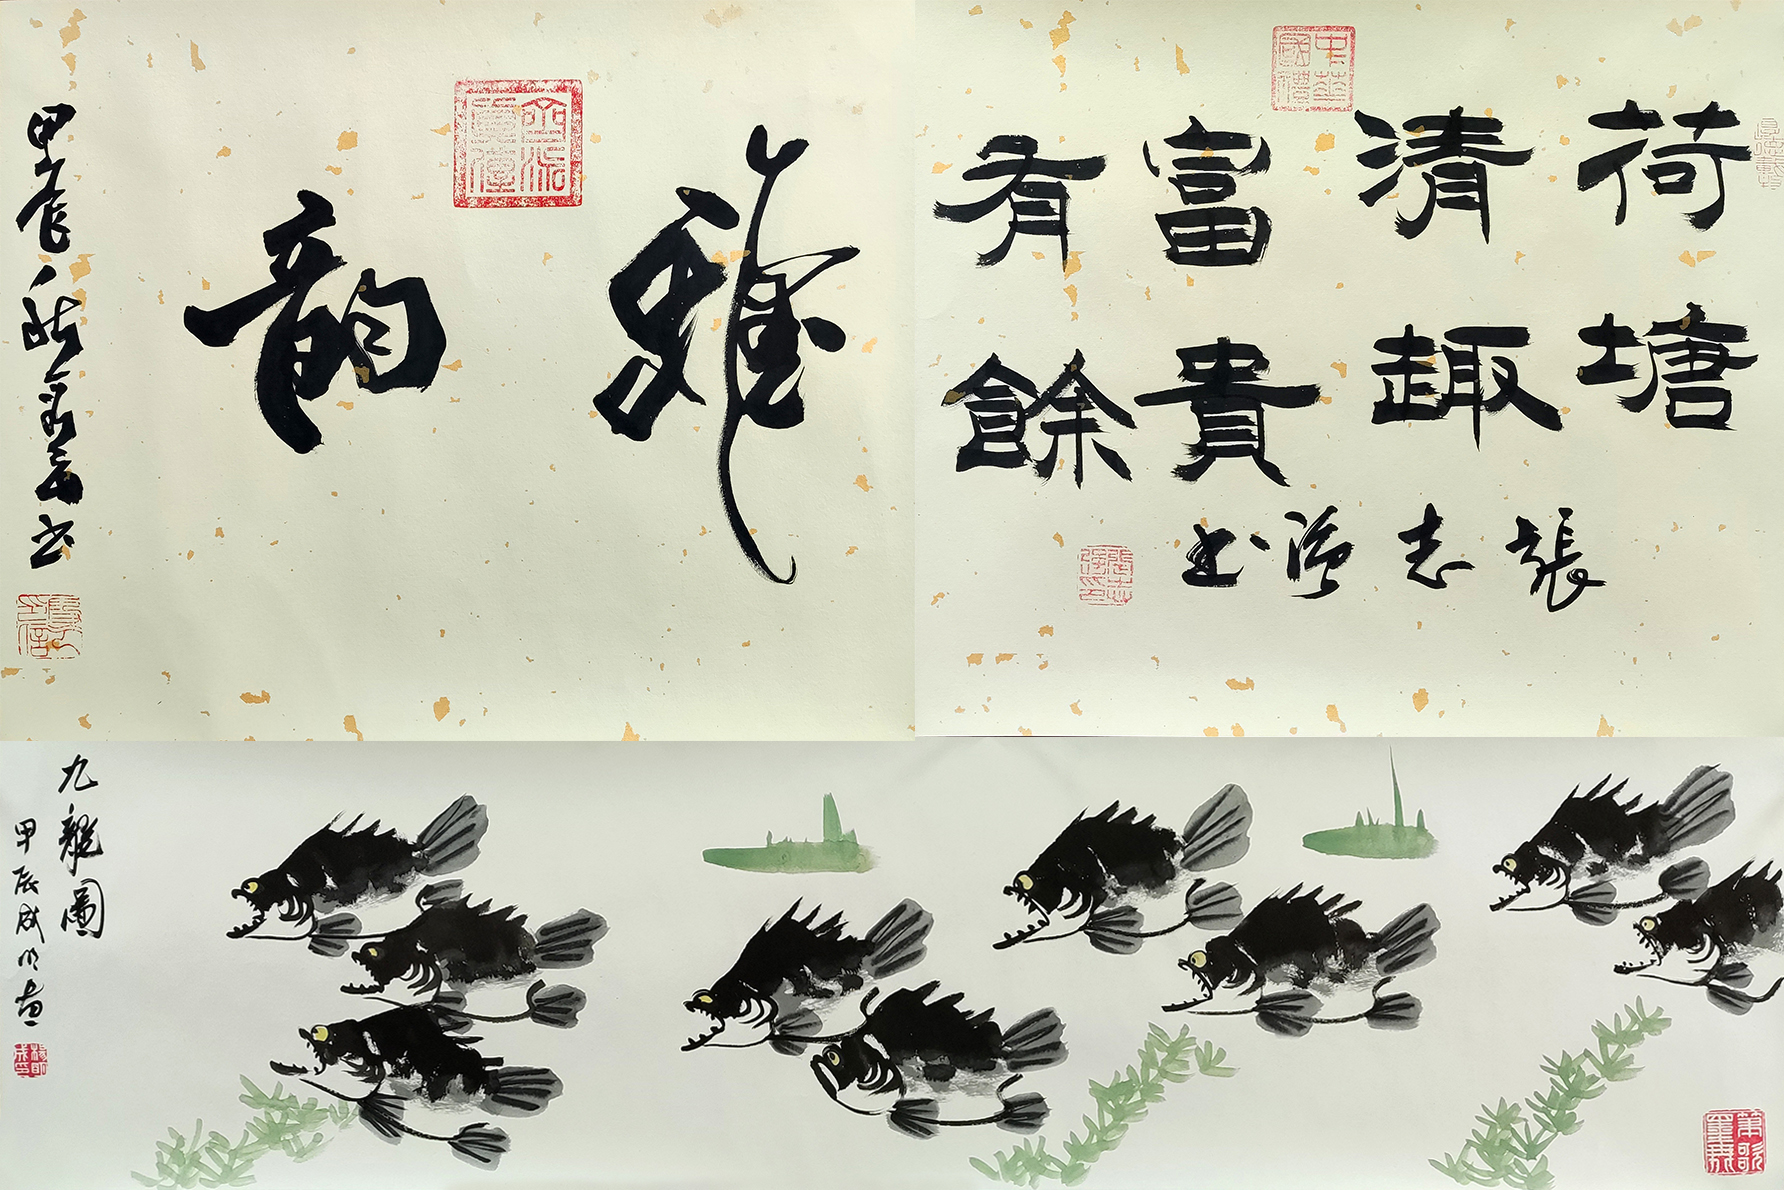 雅韻
甲辰秋
書
荷塘
清趣
富貴
有餘
張志強書
中華國禮
九龍圖
甲辰成明畫